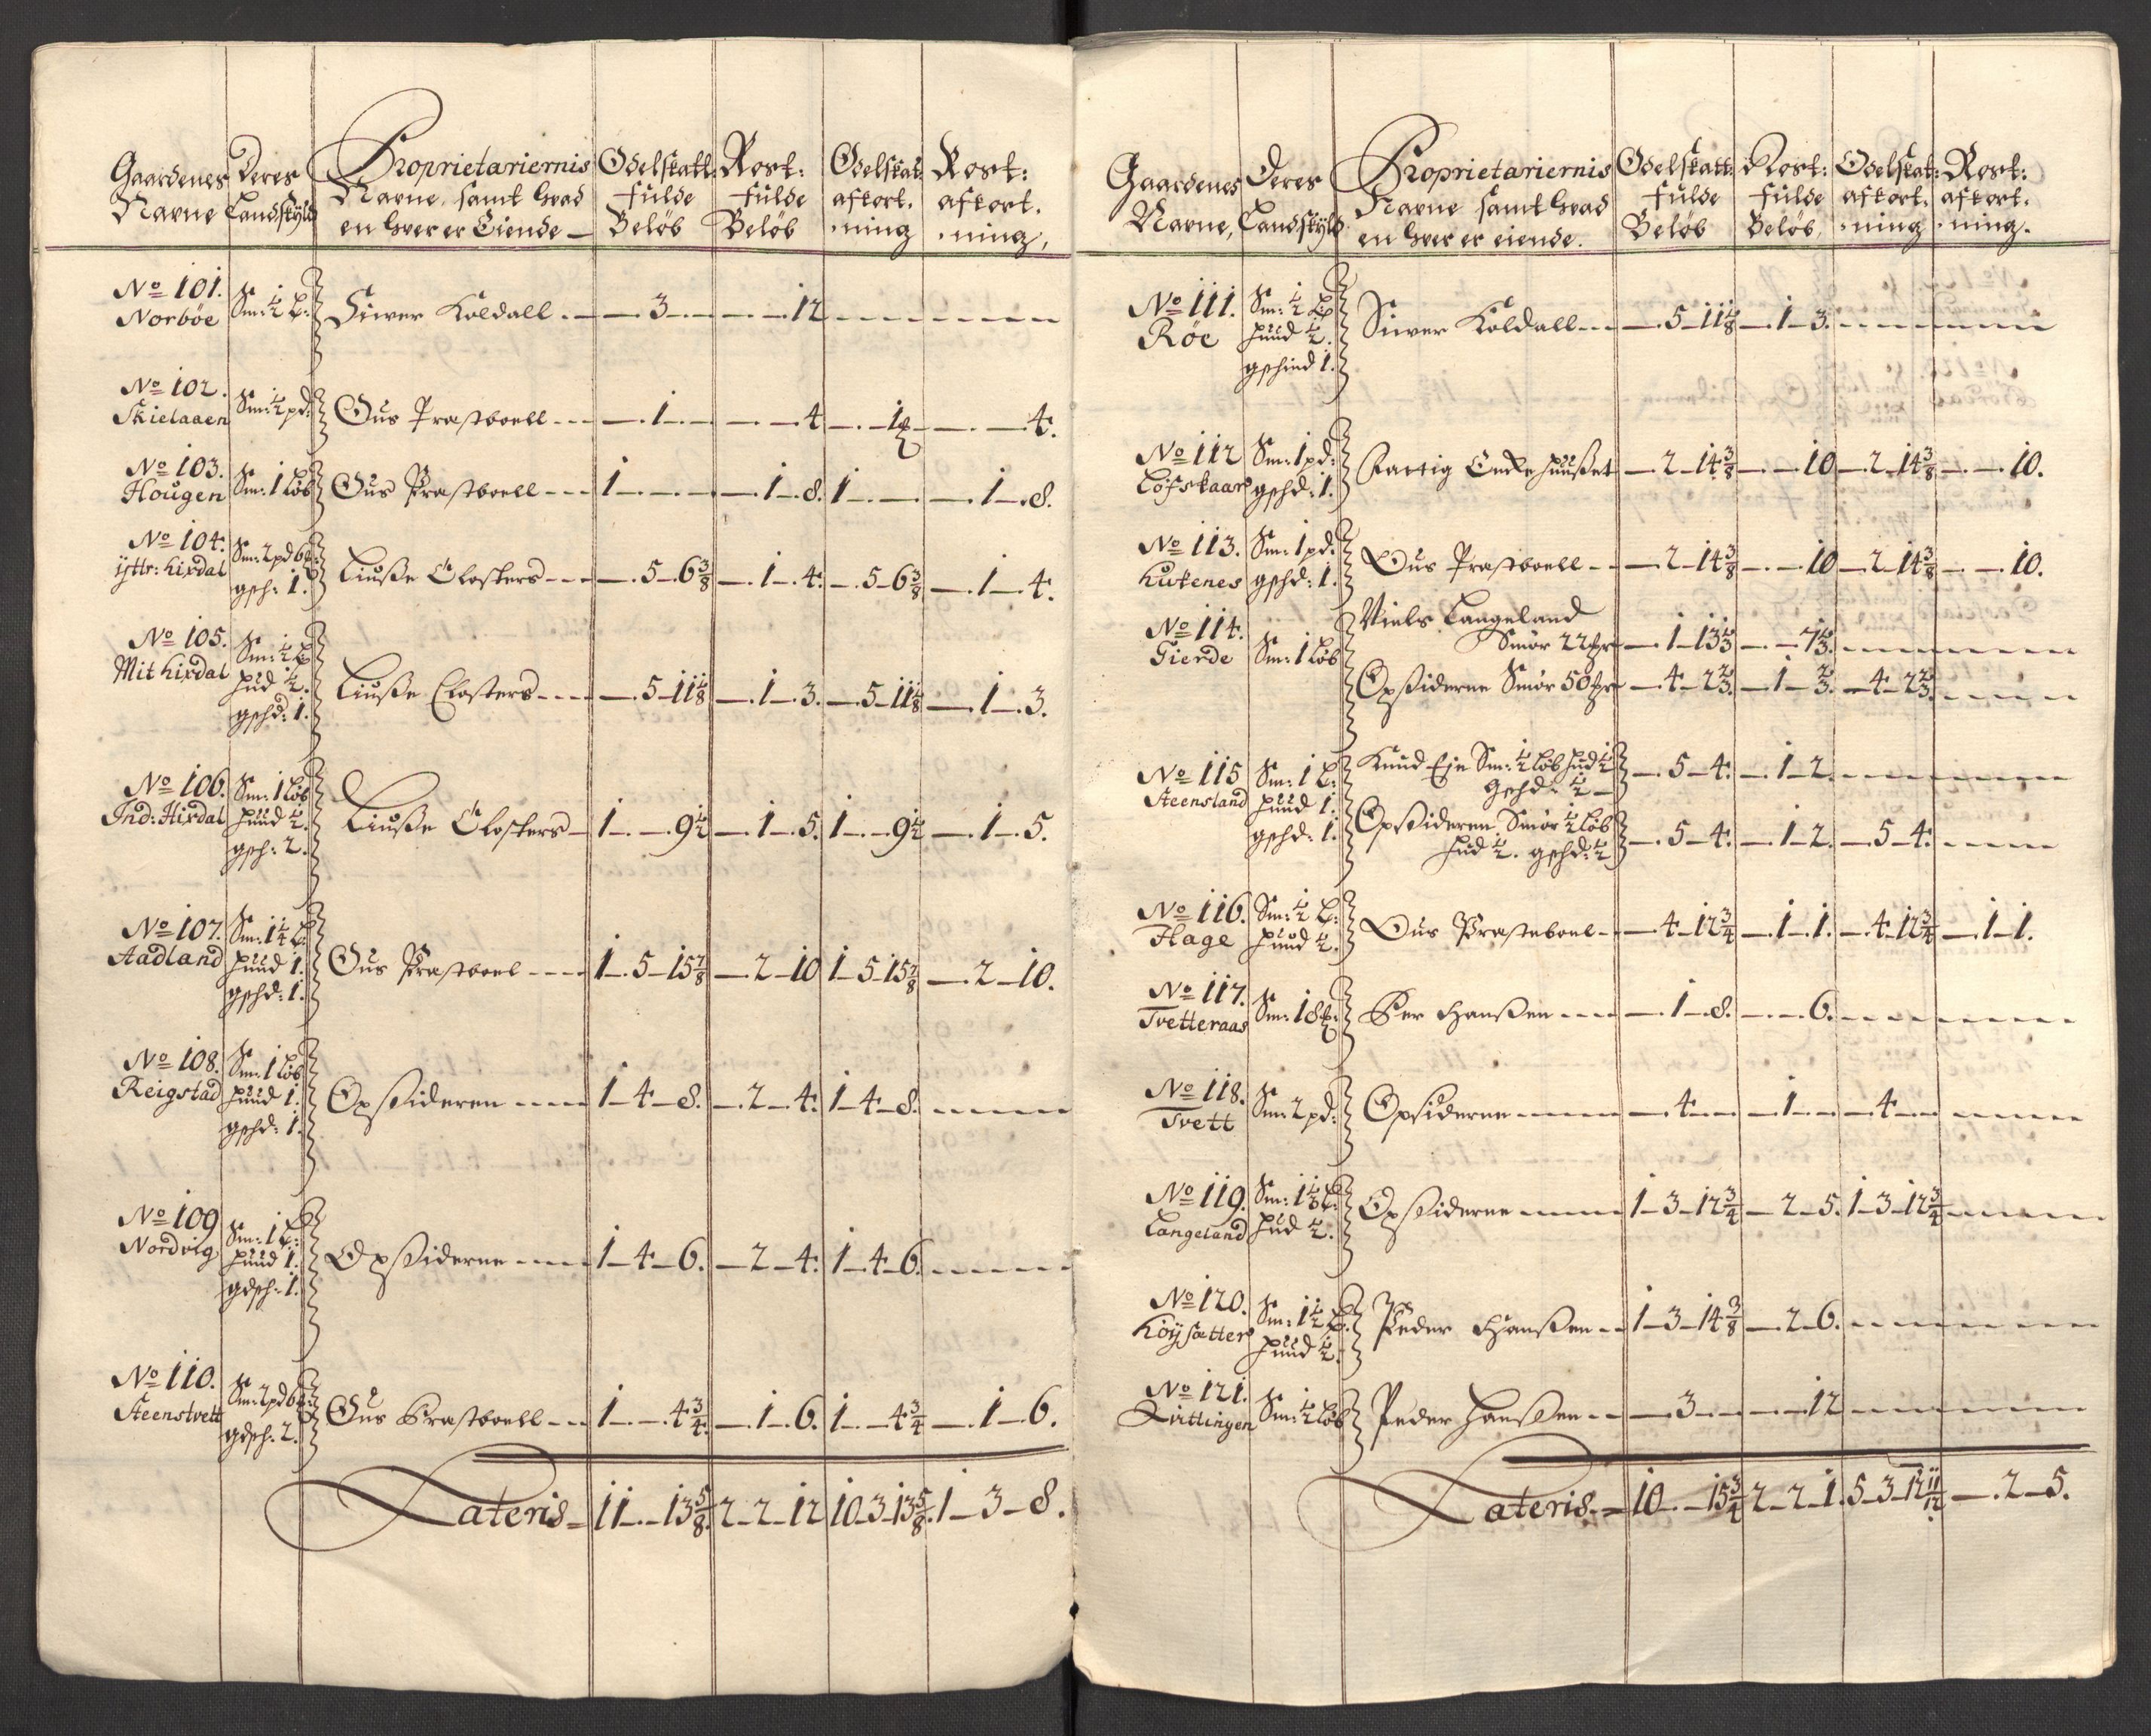 Gaardenes Navne | Deres Landskyld | Proprietariernis Navne, samt hvad en hver er Eiende | Odelskatt: fulde Beløb | Rost: fulde Beløb | Odelskat: afkort.ning | Rost: afkort.ning.
No 101. Norbøe | Sm: ½ L: | Siver Koldall | 3 | 12
No 102. Skielaaen | Sm: ½ pd: | Ous Prastboell | 1 | 4 | 1 | 4.
No 103. Hougen | Sm: 1 Løb | Ous Prastboell | 1 | 1 8. | 1 | 1 8.
No 104. ÿttr: hixdal | Sm: 2 pd 6 gsch: 1. | Liusse Closters | 5 6⅜ | 1 4. | 5 6⅜ | 1 4.
No 105. Mit hixdal | Sm: ½ L hud ½. gschd: 1. | Liusse Closters | 5 11⅛ | 1 3. | 5 11⅛ | 1 3.
No 106. Ind: Hixdal | Sm: 1 Løb huud ½. gsch: 2. | Liusse Closters | 1 9½ | 1 5. | 1 9½ | 1 5.
No 107. Aadland | Sm: 1¼ L: huud 1. gschd: 1. | Ous Prastboel | 1 5 15⅞ | 2 10 | 1 5 15⅞ | 2 10.
No 108. Reigstad | Sm: 1 Løb huud 1. gschd: 1. | Opsideren | 1 4 8. | 2 4. | 1 4 8.
No 109 Nordvig | Sm: 1 L: huud 1. gdsch: 1. | Opsiderne | 1 4 6. | 2 4. | 1 4 6.
No 110. Steenstvett | Sm: 2 pd 6 gdsch: 2. | Ous Prastboell | 1 4¾ | 1 6. | 1 4¾ | 1 6.
Lateris | 11 13⅝ | 2 2 12 | 10 3 13⅝ | 1 3 8.
Gaardenes Navne, | Deres Landskyld | Proprietariernis Navne samt hvad en hver er eiende. | Odelskatt: fulde Beløb | Rost: fulde Beløb, | Odelskat: afkort.ning | Rost: afkort.ning.
No 111. Røe | Sm: ½ Lp huud ½. gschind 1. | Siver Koldall | 5 11⅛ | 1 3.
No 112 Løfskaar | Sm: 1 pd: gschd: 1. | Fattig Encke huusset | 2 14⅜ | 10 | 2 14⅜ | 10.
No 113. Kukenes | Sm: 1 pd: gschd: 1. | Ous Prastboell | 2 14⅜ | 10 | 2 14⅜ | 10.
No 114. Gierde | Sm: 1 Løb | Niels Langeland
Smør 22 | 1 13⅓ | 7⅓
Opsiderne Smør 50 | 4 2⅔ | 1 ⅔. | 4 2⅔
No 115 Steensland | Sm: 1 L: huud 1. gschd: 1. | Knud Eje Sm: ½ Løb hud ½ gschd: ½ | 5 4. | 1 2.
Opsideren Smør ½ Løb hud ½. gschd: ½ | 5 4. | 1 2. | 5 4.
No 116. Hage | Sm: ½ L: huud ½. | Ous Prasteboel | 4 12¾ | 1 1. | 4 12¾ | 1 1.
No 117. Tvetteraas | Sm: 18 | Per Hanssen | 1 8. | 6.
No 118. Tvett | Sm: 2 pd: | Opsiderne | 4 | 1 | 4
No 119. Langeland | Sm: 1⅓ L: hud ½. | Opsiderne | 1 3 12¾ | 2 5. | 1 3 12¾
No 120. Høÿsætter | Sm: 1½ L: huud ½. | Peder Hanssen | 1 3 14⅜ | 2 6.
No 121. Sirttingen | Sm: ½ Løb | Peder Hanssen | 3 | 12
Lateris | 10 15¾ | 2 2 1. | 5 3 12 11/12 | 2 5.